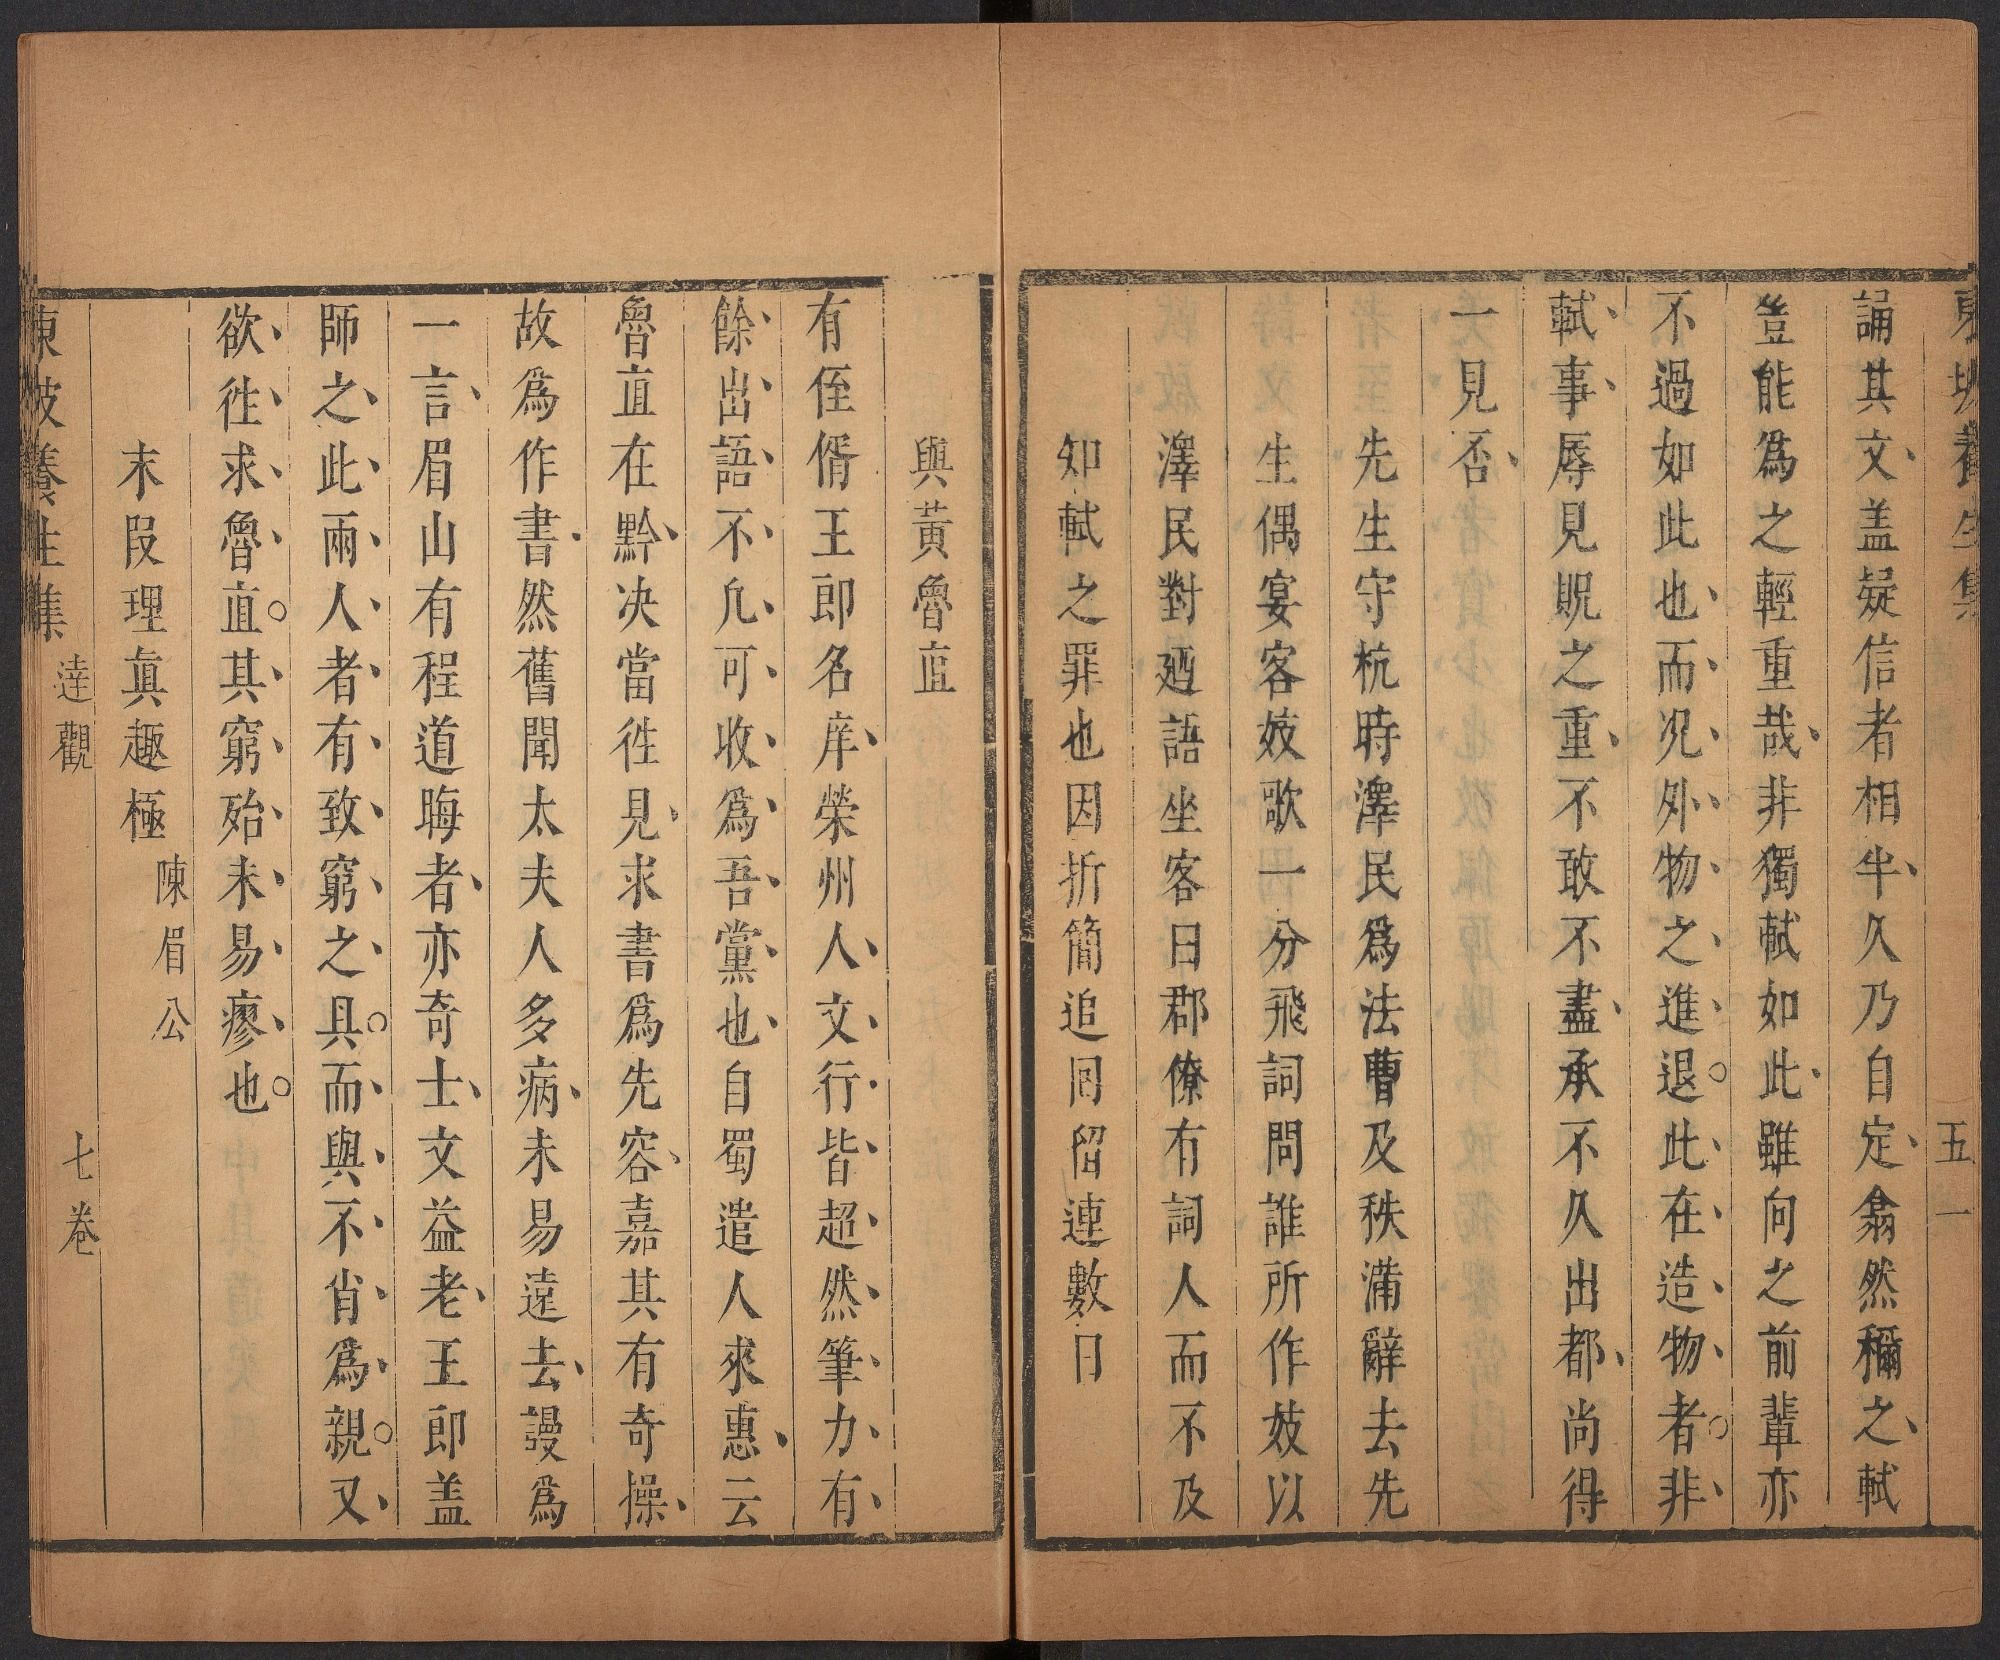 東坡養生集　五一
誦其文盖疑信者相半久乃自定翕然稱之軾
豈能爲之輕重哉非獨軾如此雖向之前輩亦
不過如此也而况外物之進退此在造物者非
軾事辱見貺之重不敢不盡承不久出都尚得
一見否
先生守杭時澤民爲法曹及秩滿辭去先
生偶宴客妓歌一分飛詞問誰所作妓以
澤民對廼語坐客曰郡僚有詞人而不及
知軾之罪也因折簡追回留連數日
與黃魯直
有侄壻王郎名庠榮州人文行皆超然筆力有
餘出語不凡可收爲吾黨也自蜀遣人來惠云
魯直在黔决當徃見求書爲先容嘉其有奇操
故爲作書然舊聞太夫人多病未易遠去謾爲
一言眉山有程道晦者亦奇士文益老王郎盖
師之此兩人者有致窮之具而與不肖爲親又
欲徃求魯直其窮殆未易瘳也
末段理眞趣極　陳眉公
東坡養生集　達觀　七卷